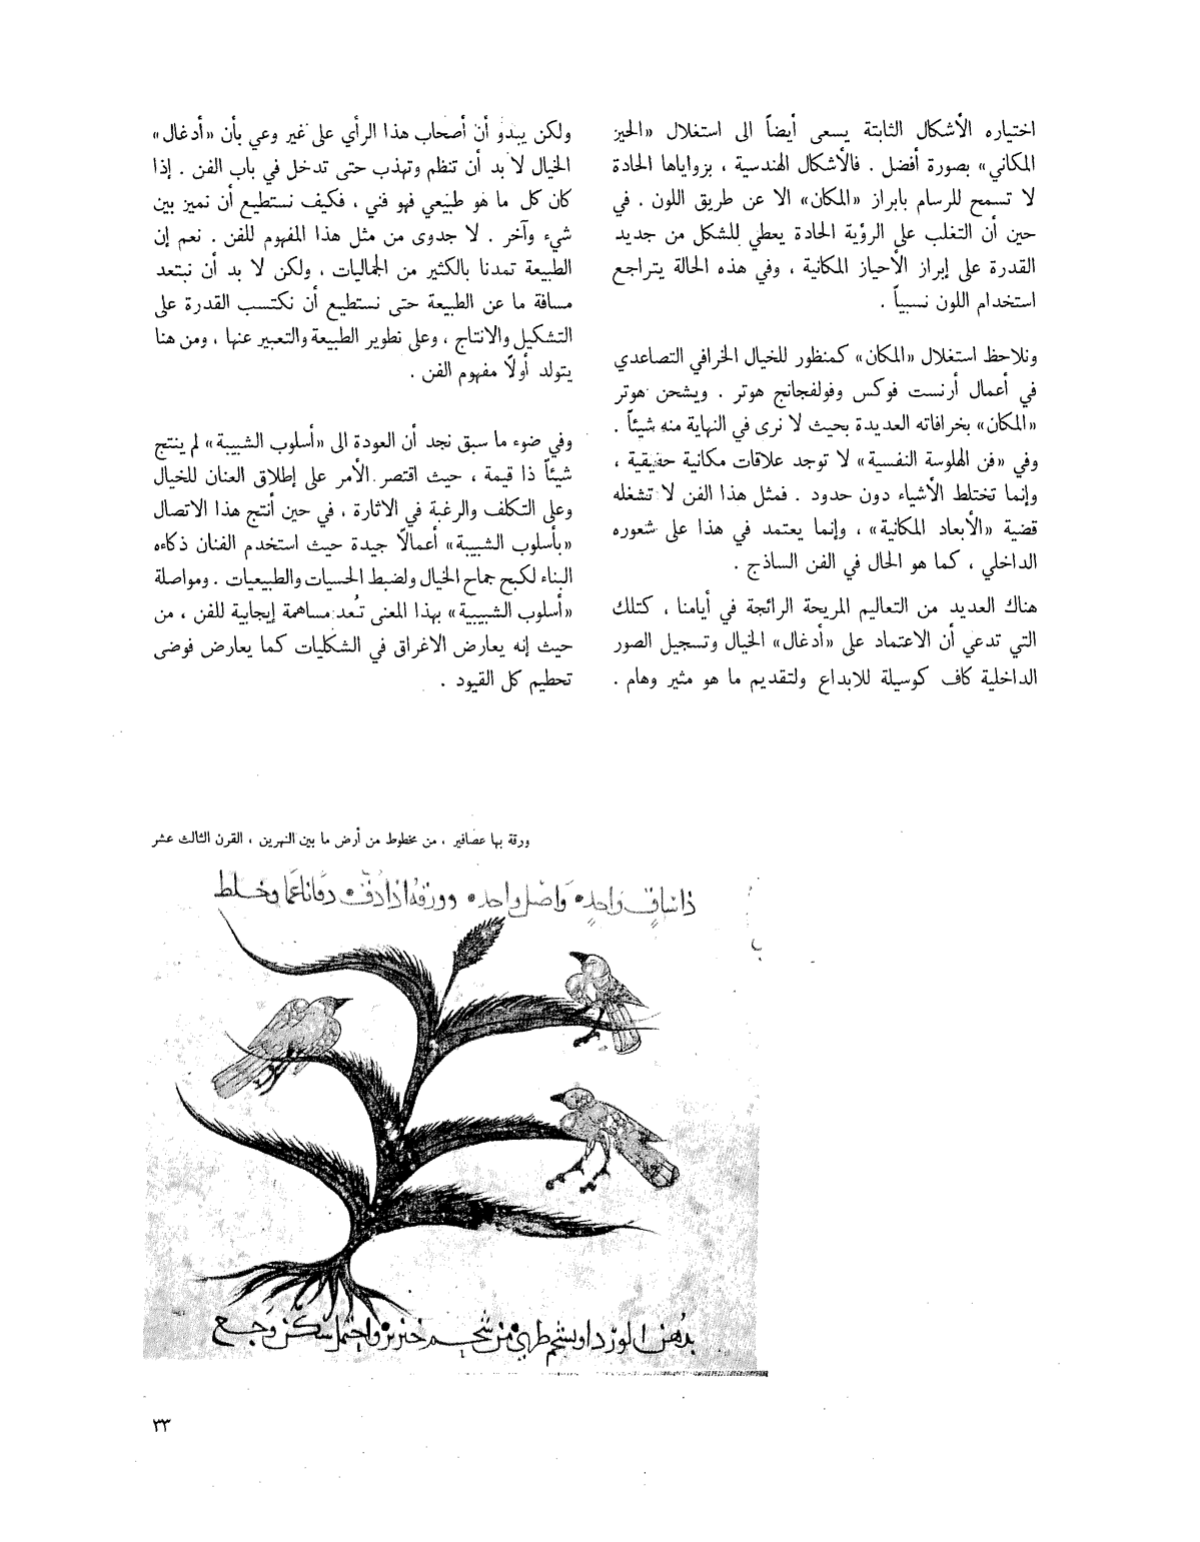 اختياره الأشكال الثابتة يسعى أيضاً الى استغلال «الحيز
المكاني» بصورة أفضل . فالأشكال الهندسية ، بزواياها الحادة
لا تسمح للرسام بابراز «المكان» الا عن طريق اللون . في
حين أن التغلب على الرؤية الحادة يعطي للشكل من جديد
القدرة على إبراز الأحياز المكانية ، وفي هذه الحالة يتراجع
استخدام اللون نسبياً .
ونلاحظ استغلال «المكان» كمنظور للخيال الخرافي التصاعدي
في أعمال أرنست فوكس وفولفجانج هوتر . ويشحن هوتر
«المكان» بخرافاته العديدة بحيث لا نرى في النهاية منه شيئاً .
وفي «فن الهلوسة النفسية» لا توجد علاقات مكانية حقيقية ،
وإنما تختلط الأشياء دون حدود . فمثل هذا الفن لا تشغله
قضية «الأبعاد المكانية» ، وإنما يعتمد في هذا على شعوره
الداخلي ، كما هو الحال في الفن الساذج .
هناك العديد من التعاليم المريحة الرائجة في أيامنا ، كتلك
التي تدعي أن الاعتماد على «أدغال» الخيال وتسجيل الصور
الداخلية كاف كوسيلة للابداع ولتقديم ما هو مثير وهام .
ولكن يبدو أن أصحاب هذا الرأي على غير وعي بأن «أدغال»
الخيال لا بد أن تنظم وتهذب حتى تدخل في باب الفن . إذا
كان كل ما هو طبيعي فهو فني ، فكيف نستطيع أن نميز بين
شيء وآخر . لا جدوى من مثل هذا المفهوم للفن . نعم إن
الطبيعة تمدنا بالكثير من الجماليات ، ولكن لا بد أن نبتعد
مسافة ما عن الطبيعة حتى نستطيع أن نكتسب القدرة على
التشكيل والانتاج ، وعلى تطوير الطبيعة والتعبير عنها ، ومن هنا
يتولد أولاً مفهوم الفن .
وفي ضوء ما سبق نجد أن العودة الى «أسلوب الشبيبة» لم ينتج
شيئاً ذا قيمة ، حيث اقتصر الأمر على إطلاق العنان للخيال
وعلى التكلف والرغبة في الاثارة ، في حين أنتج هذا الاتصال
«بأسلوب الشبيبة» أعمالاً جيدة حيث استخدم الفنان ذكاءه
البناء لكبح جماح الخيال ولضبط الحسيات والطبيعيات . ومواصلة
«أسلوب الشبيبية» بهذا المعنى تُعد مساهمة إيجابية للفن ، من
حيث إنه يعارض الاغراق في الشكليات كما يعارض فوضى
تحطيم كل القيود .
ورقة بها عصافير ، من مخطوط من أرض ما بين النهرين ، القرن الثالث عشر
ذا ساق واحد واصل واحد وورقه اذا دق وخلط
بدهن الورد او بشحم طري من شحم خنزير واحتمل سكن وجع
٣٣